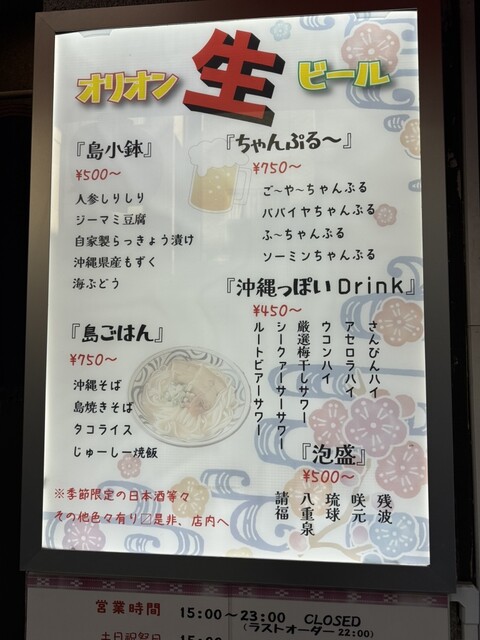 オリオン 生 ビール
『島小鉢』
¥500～
人参しりしり
ジーマミ豆腐
自家製らっきょう漬け
沖縄県産もずく
海ぶどう
『ちゃんぷる～』
¥750～
ご～や～ちゃんぷる
パパイヤちゃんぷる
ふ～ちゃんぷる
ソーミンちゃんぷる
『沖縄っぽいDrink』
¥450～
さんぴんハイ
アセロラハイ
ウコンハイ
厳選梅干しサワー
シークァーサーサワー
ルートビアーサワー
『島ごはん』
¥750～
沖縄そば
島焼きそば
タコライス
じゅーしー焼飯
『泡盛』
¥500～
残波
咲元
琉球
八重泉
請福
※季節限定の日本酒等々
その他色々有り〼是非、店内へ
営業時間 15:00～23:00 CLOSED
(ラストオーダー 22:00)
土日祝祭日 15:00